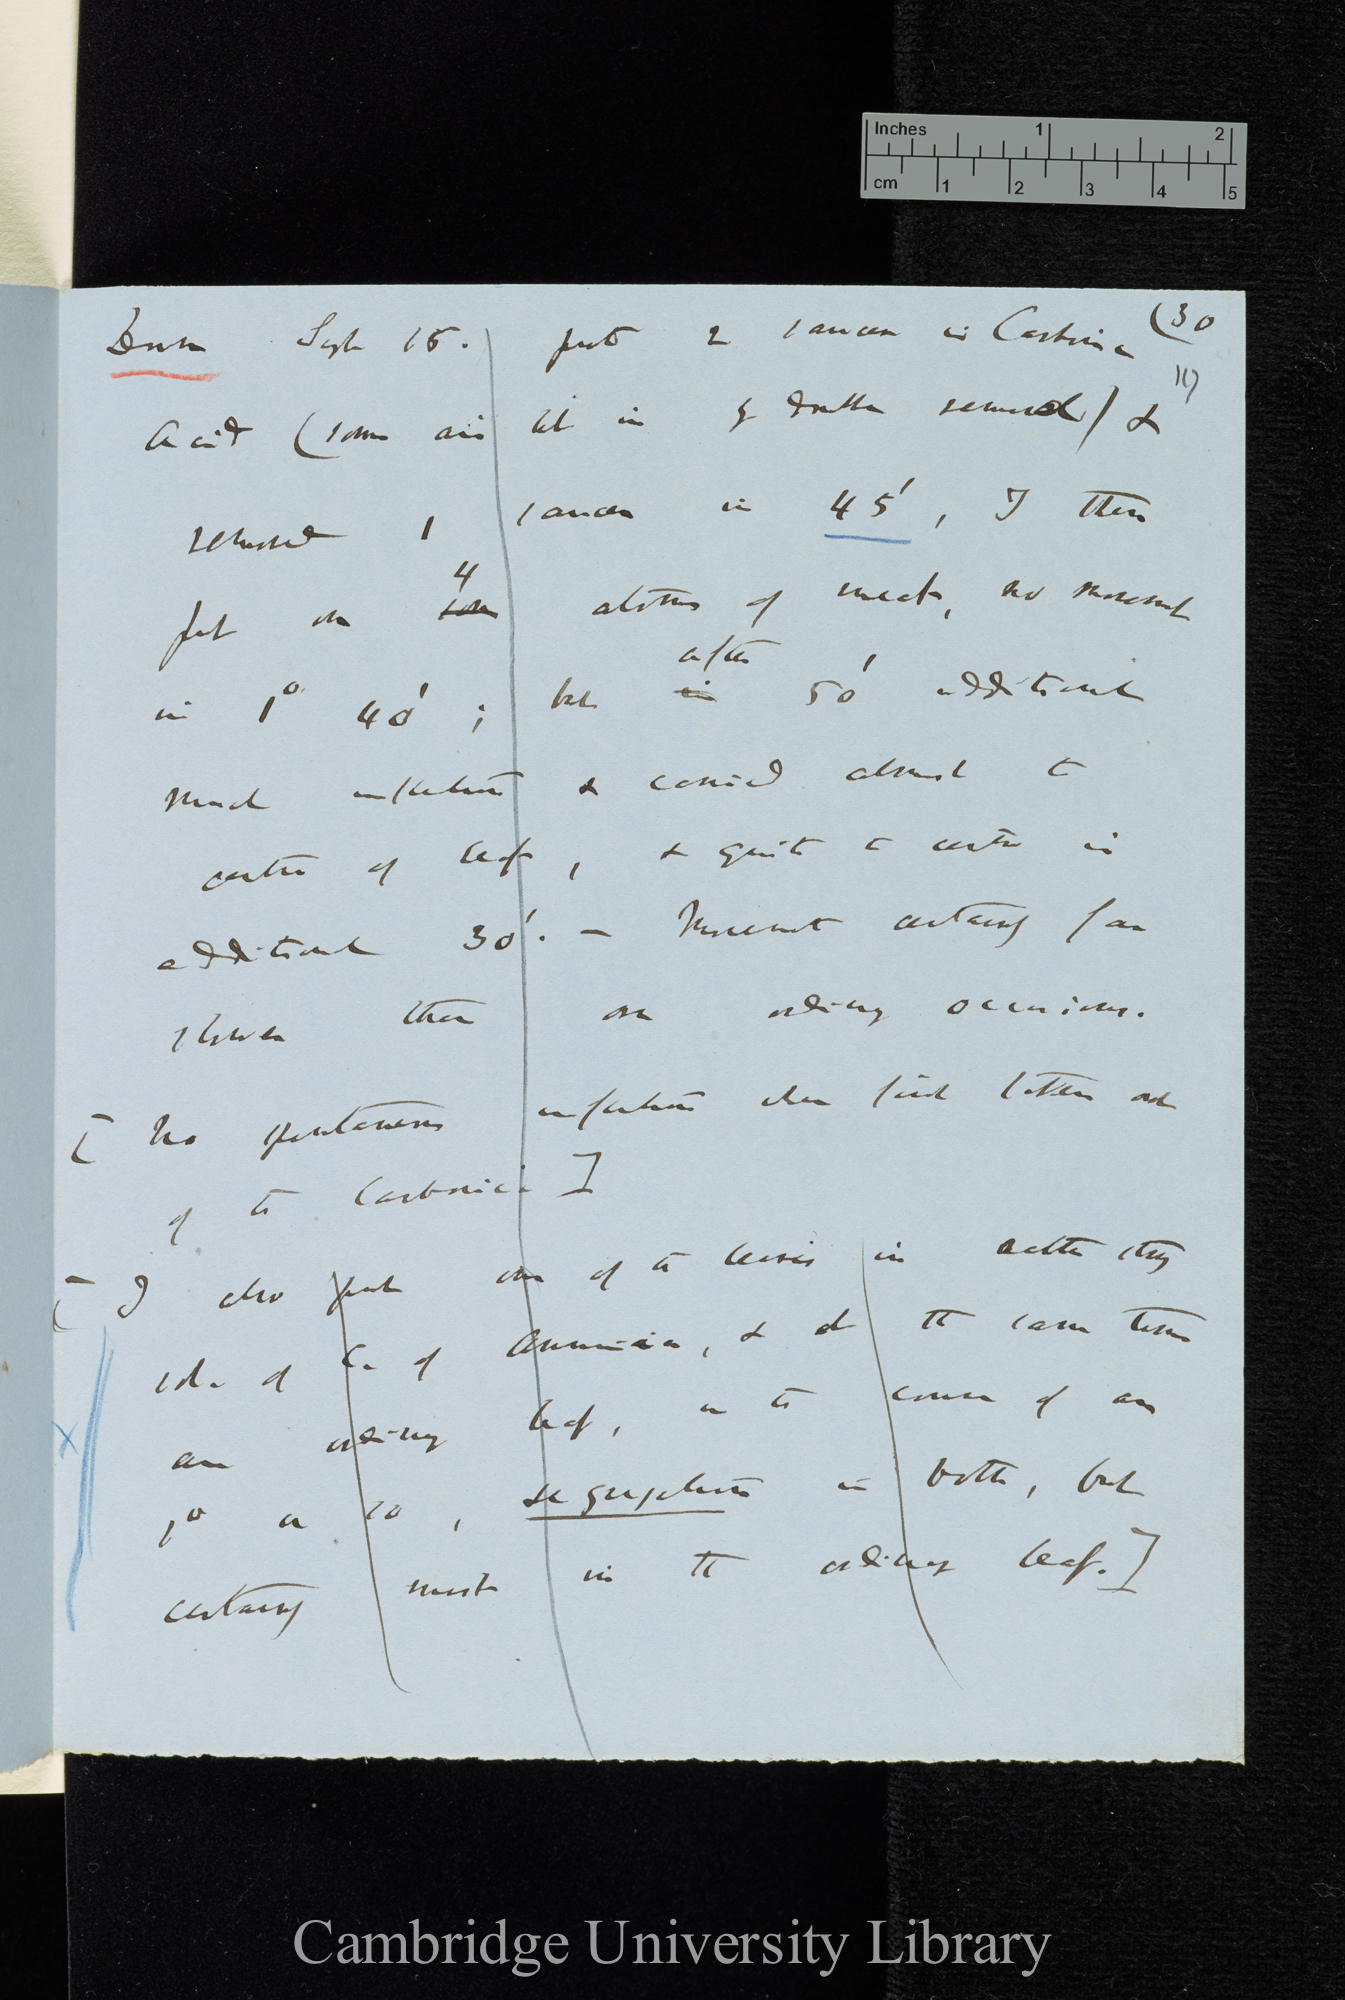 Inches 1 2
cm 1 2 3 4 5
(30
Sept 15. put 2 in Carbonic
117
Acid (some air let in removed) &
removed 1 in 45', I then
put on 4 some atoms of meat, no movement
in 1° 40'; but after in 50' additional
much inflection & carried almost to
centre of leaf, & quite to centre in
additional 30'. — Movement certainly far
slower than on ordinary occasions.
[No spontaneous inflection when first taken out
of the Carbonic]
[I also put one of the leaves in rather strong
sol. of C. of Ammonia, & at the same time
an ordinary leaf, in the course of an
1° or so, segregation in both, but
certainly most in the ordinary leaf.]
Cambridge University Library